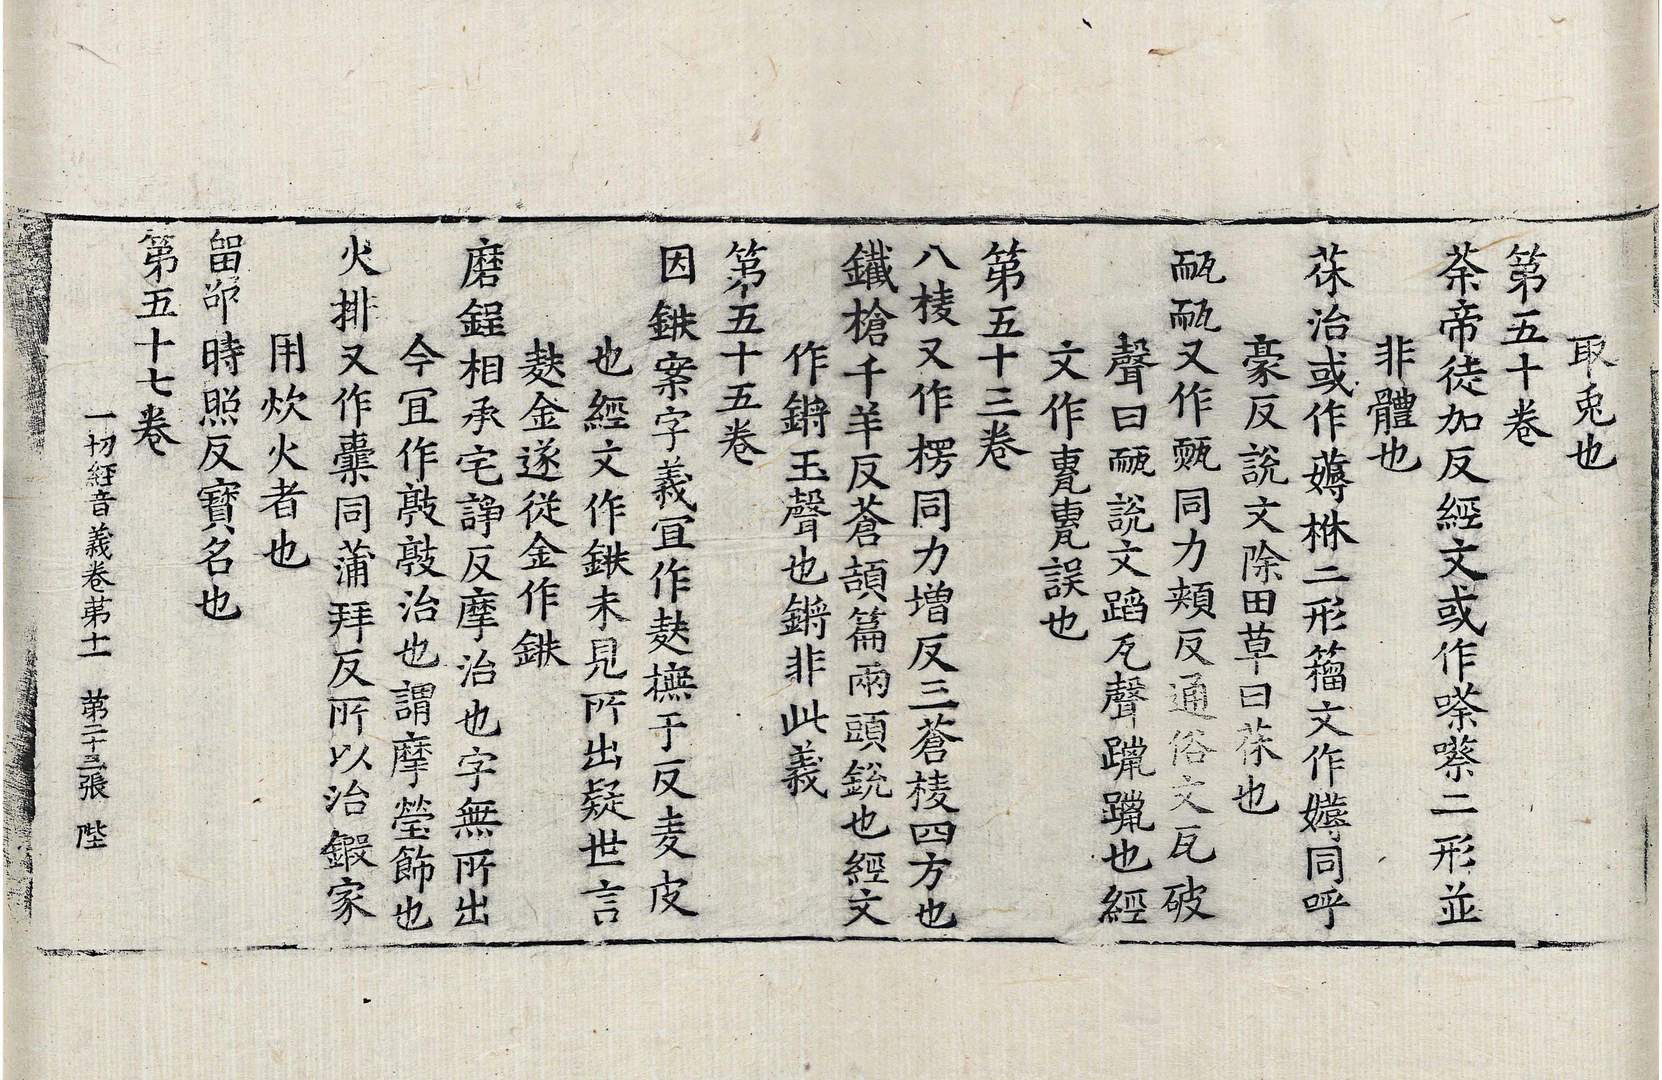 取兎也
第五十卷
荼帝徒加反經文或作㗇㘂二形並
非體也
茠治或作薅㭒二形籀文作𡡗同呼
豪反說文除田草曰茠也
㼯㼯又作甈同力頰反通俗文瓦破
聲曰㼯說文蹈瓦聲躐躐也經
文作㼽㼽誤也
第五十三卷
八棱又作楞同力增反三蒼棱四方也
鐵槍千羊反蒼頡篇兩頭銳也經文
作鏘玉聲也鏘非此義
第五十五卷
因鉄案字義冝作麩撫于反麦皮
也經文作鉄未見所出疑世言
麩金遂從金作鉄
磨鋥相承宅諍反摩治也字無所出
今冝作敦敦治也謂摩瑩飾也
火排又作橐同蒲拜反所以治鍛家
用炊火者也
留邵時照反寶名也
第五十七卷
一切經音義卷苐十一 第二十三張 陛